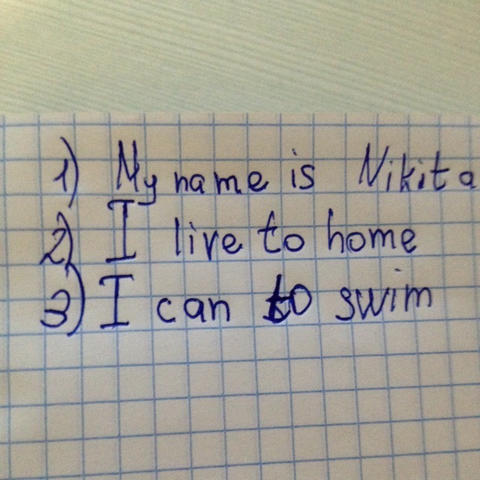 1) My name is Nikita
2) I live to home
3) I can to swim